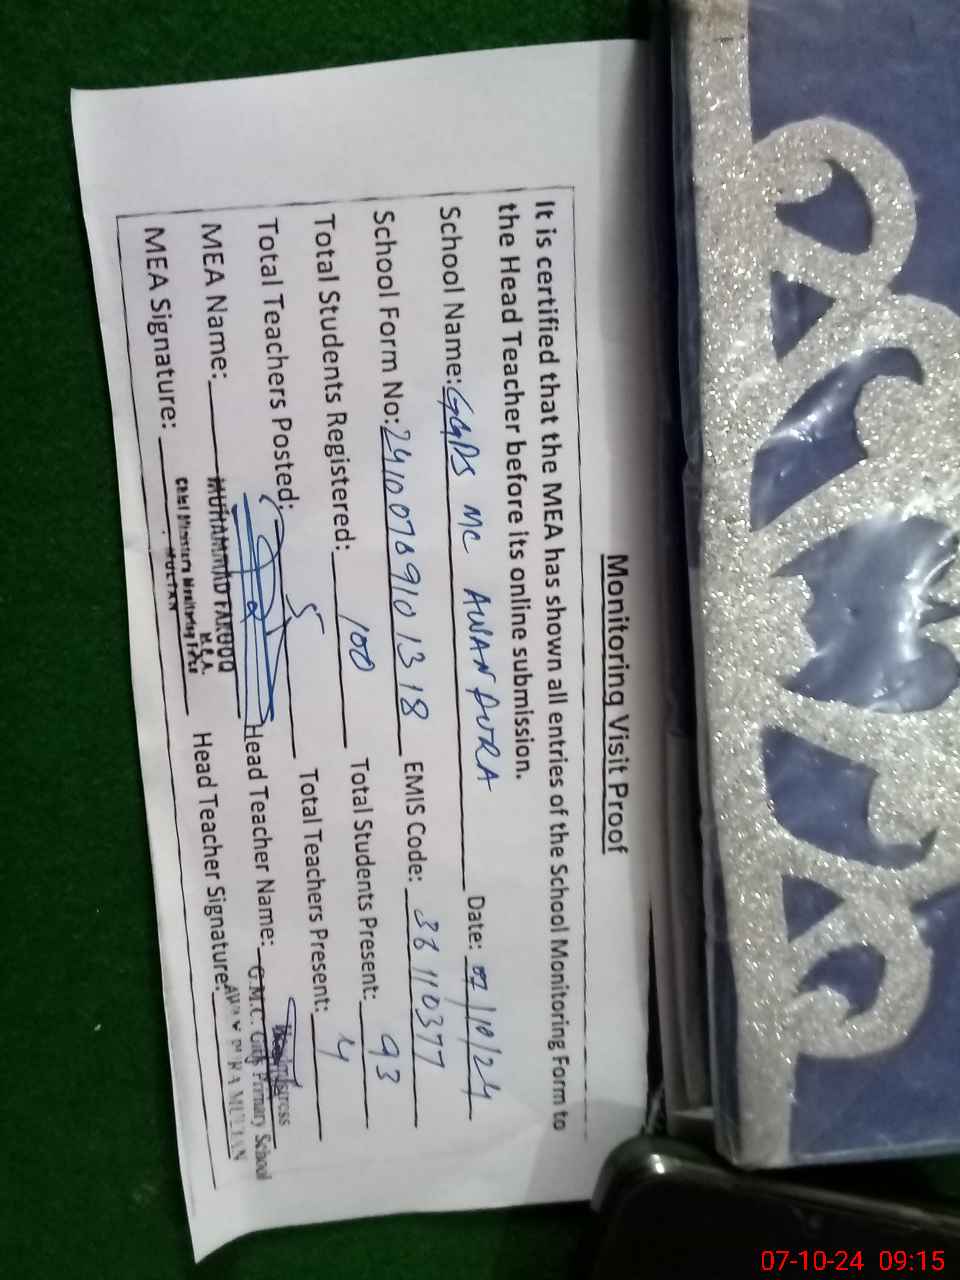 Monitoring Visit Proof
It is certified that the MEA has shown all entries of the School Monitoring Form to
the Head Teacher before its online submission.
School Name: GGPS MC AWAN PURA Date: 07/10/24
School Form No: 2410076910 1318 EMIS Code: 36110377
Total Students Registered: 100 Total Students Present: 93
Total Teachers Posted: 5 Total Teachers Present: 4
MEA Name: MUHAMMAD FAROOQ Head Teacher Name:
M.E.A.
Headmistress
G.M.C. Girls Primary School
AWAN PURA MULTAN
MEA Signature: Head Teacher Signature:
Chief Ministers Monitoring Force
MULTAN
07-10-24 09:15